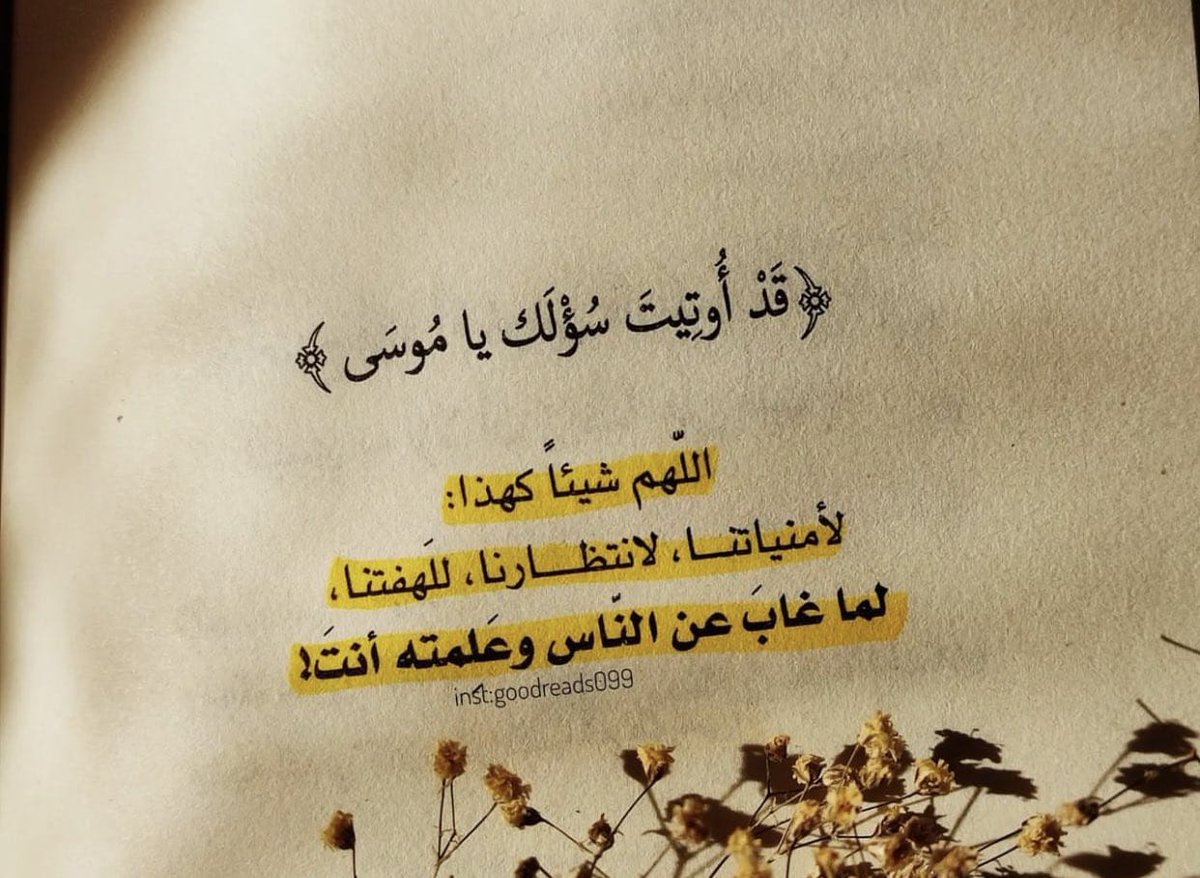 ﴿قَدْ أُوتِيتَ سُؤْلَكَ يا مُوسَى﴾
اللّهم شيئاً كهذا:
لأمنياتنــا، لانتظــارنا، للَهفتنا،
لما غابَ عن النّاس وعَلمته أنتَ!
inst:goodreads099